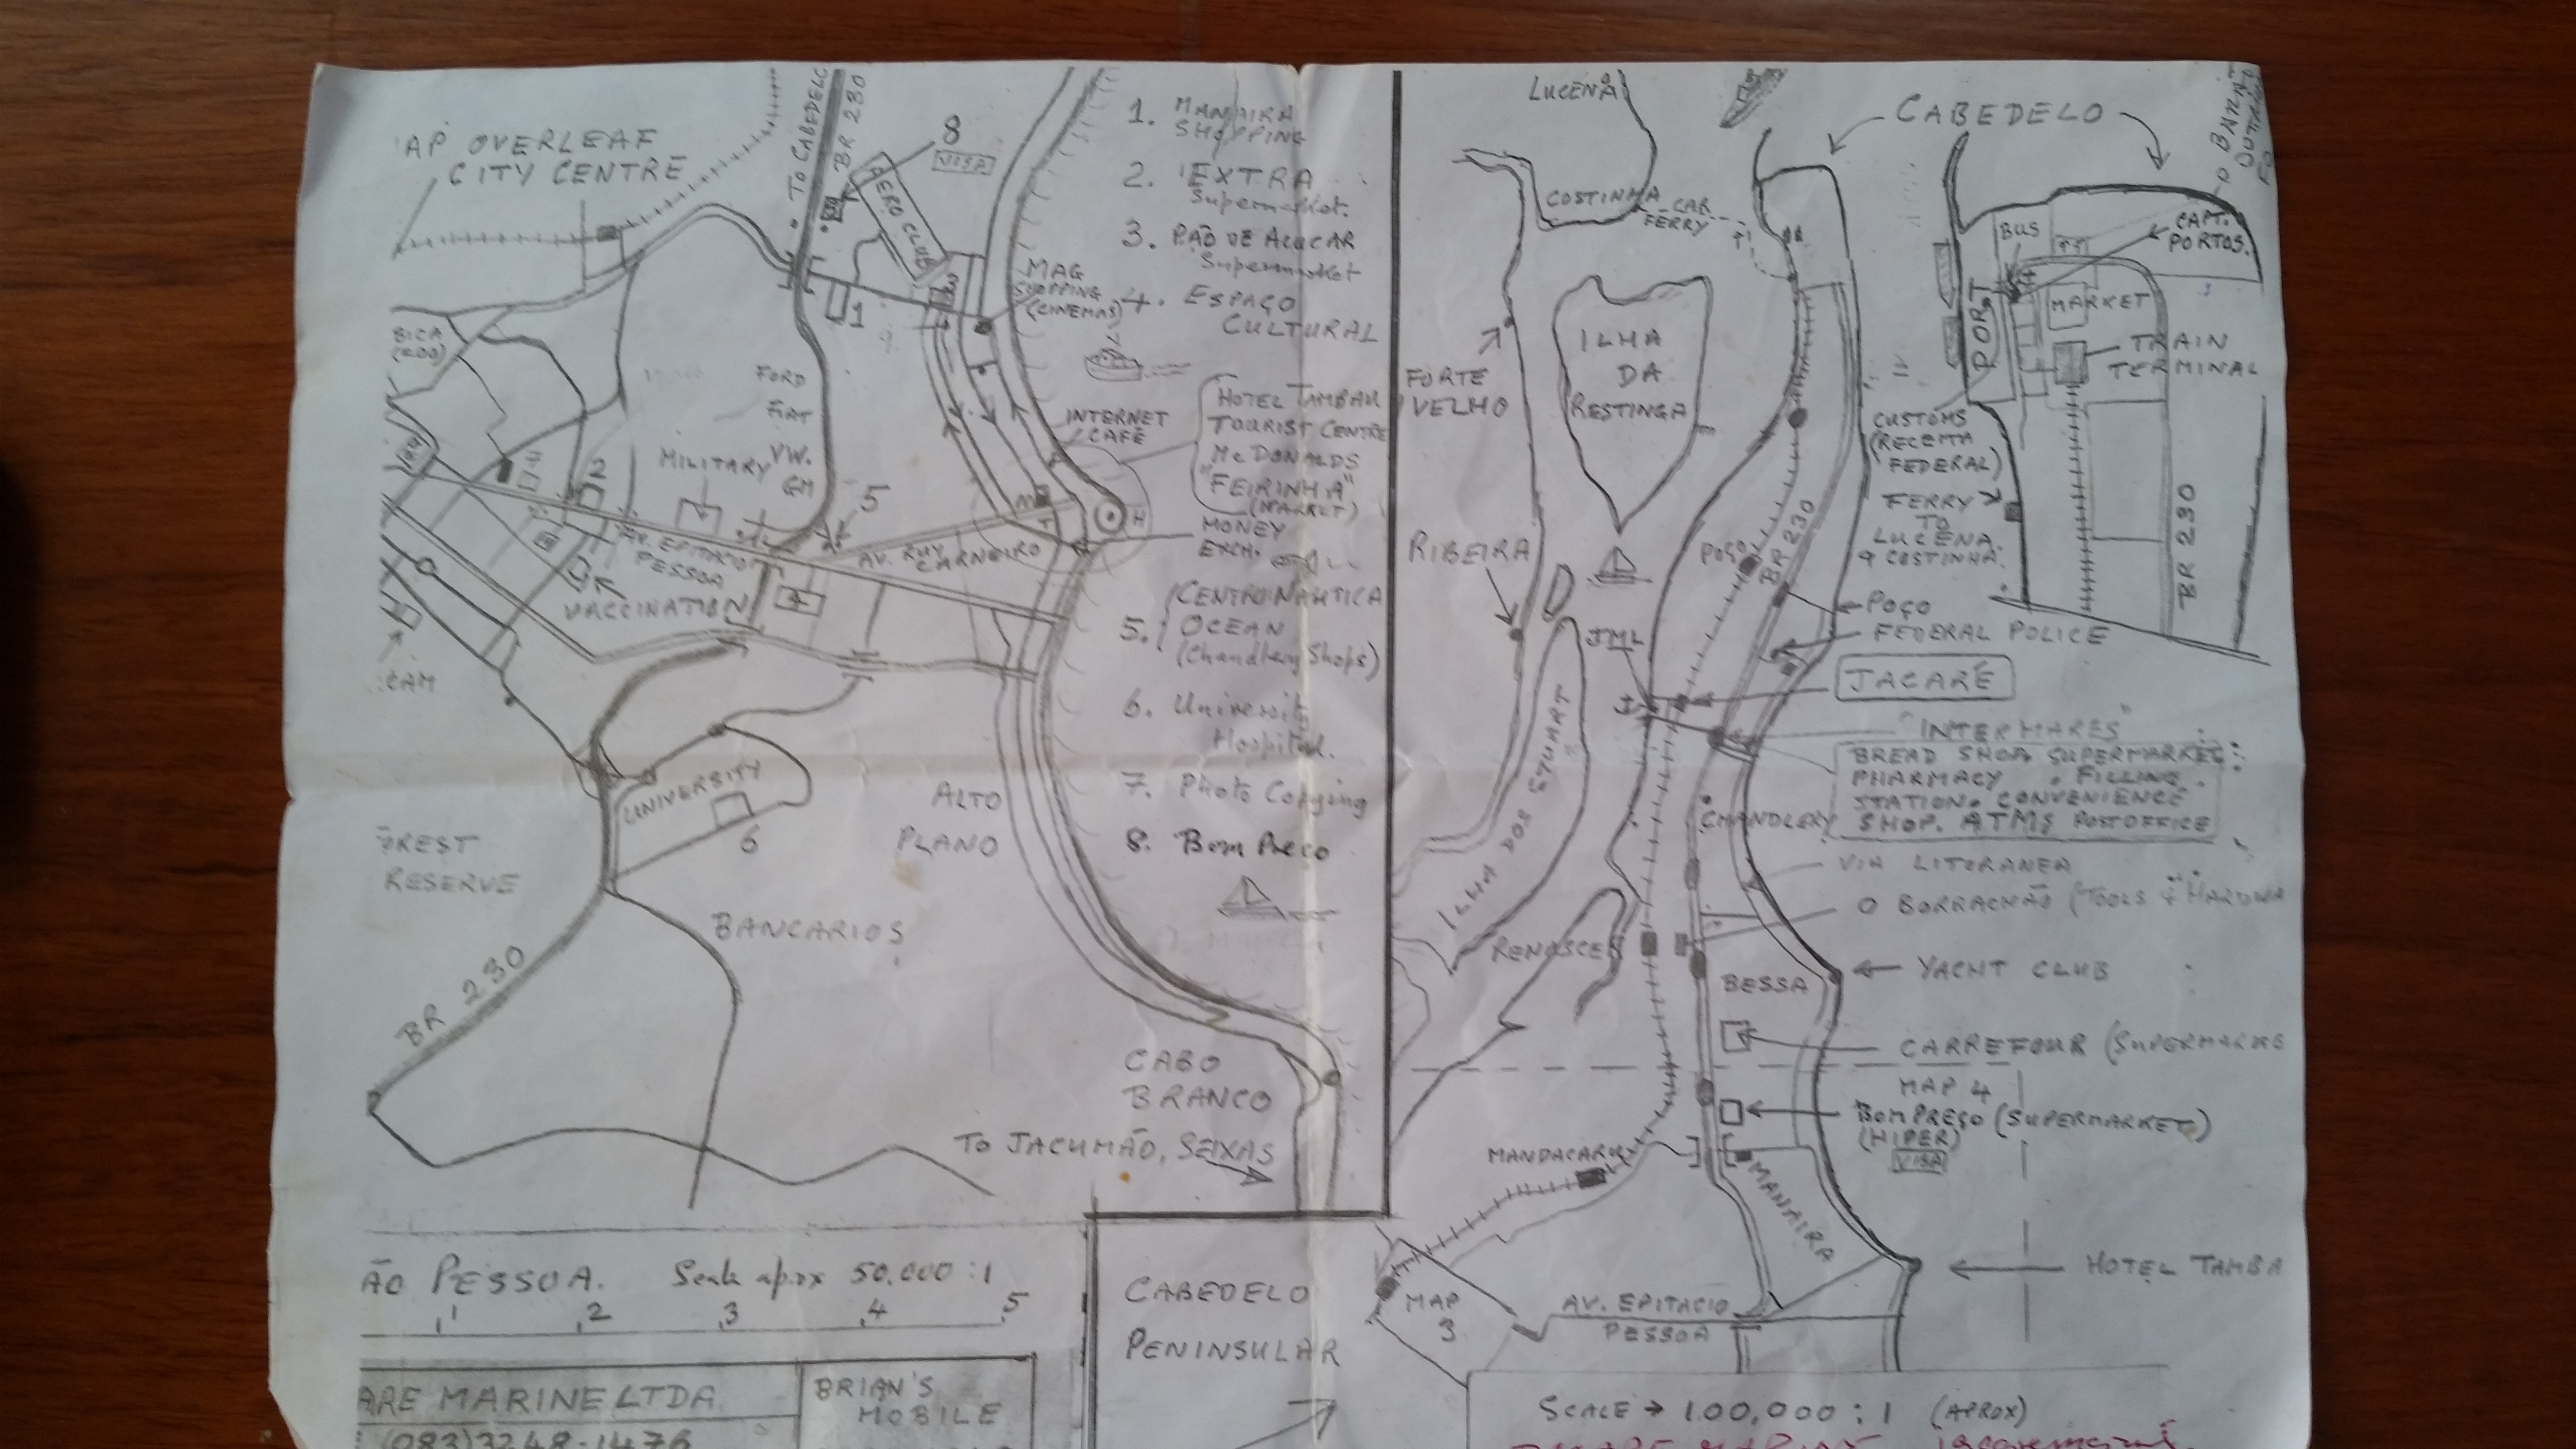 'AP OVERLEAF
CITY CENTRE
TO CABEDELO
BR 230
8
VISA
AERO CLUB
1
3
MAG
SHOPPING
(CINEMAS)
BICA
(ZOO)
FORD
FIAT
VW.
GM
MILITARY
2
5
INTERNET
CAFÉ
AV. EPITACIO
PESSOA
AV. RUY
CARNEIRO
H
T
VACCINATION
4
CAM
UNIVERSITY
6
ALTO
PLANO
REST
RESERVE
BANCARIOS
BR 230
CABO
BRANCO
TO JACUMÃO, SEIXAS
1. MANAIRA
SHOPPING
2. EXTRA
Supermarket.
3. PÃO DE AÇUCAR
Supermarket
4. ESPAÇO
CULTURAL
HOTEL TAMBAU
TOURIST CENTRE
McDONALDS
"FEIRINHA"
(MARKET)
MONEY
EXCH.
5. CENTRO NAUTICA
OCEAN
(Chandlery Shops)
6. University
Hospital.
7. Photo Copying
8. Bom Preço
ÃO PESSOA. Scale aprox 50.000 : 1
1 2 3 4 5
ARE MARINE LTDA
(083) 3248-1476
BRIAN'S
MOBILE
CABEDELO
PENINSULAR
LUCENA
COSTINHA
CAR
FERRY
CABEDELO
FORTE
VELHO
ILHA
DA
RESTINGA
RIBEIRA
JML
ILHA DOS STUART
POÇO
BR 230
BUS
CAPT.
PORTOS.
PORT
MARKET
TRAIN
TERMINAL
CUSTOMS
(RECEITA
FEDERAL)
FERRY
TO
LUCENA
& COSTINHA.
BR 230
POÇO
FEDERAL POLICE
JACARÉ
"INTERMARES"
BREAD SHOP, SUPERMARKET
PHARMACY . FILLING
STATION. CONVENIENCE
SHOP. ATMS POST OFFICE
CHANDLERY
VIA LITORANEA
O BORRACHÃO (TOOLS & HARDWA
RENASCER
BESSA
YACHT CLUB
CARREFOUR (SUPERMARKE
MAP 4
BOMPREÇO (SUPERMARKET)
(HIPER)
VISA
MANDACARU
MANAIRA
HOTEL TAMBA
MAP
3
AV. EPITACIO
PESSOA
SCALE → 100,000 : 1 (APROX)